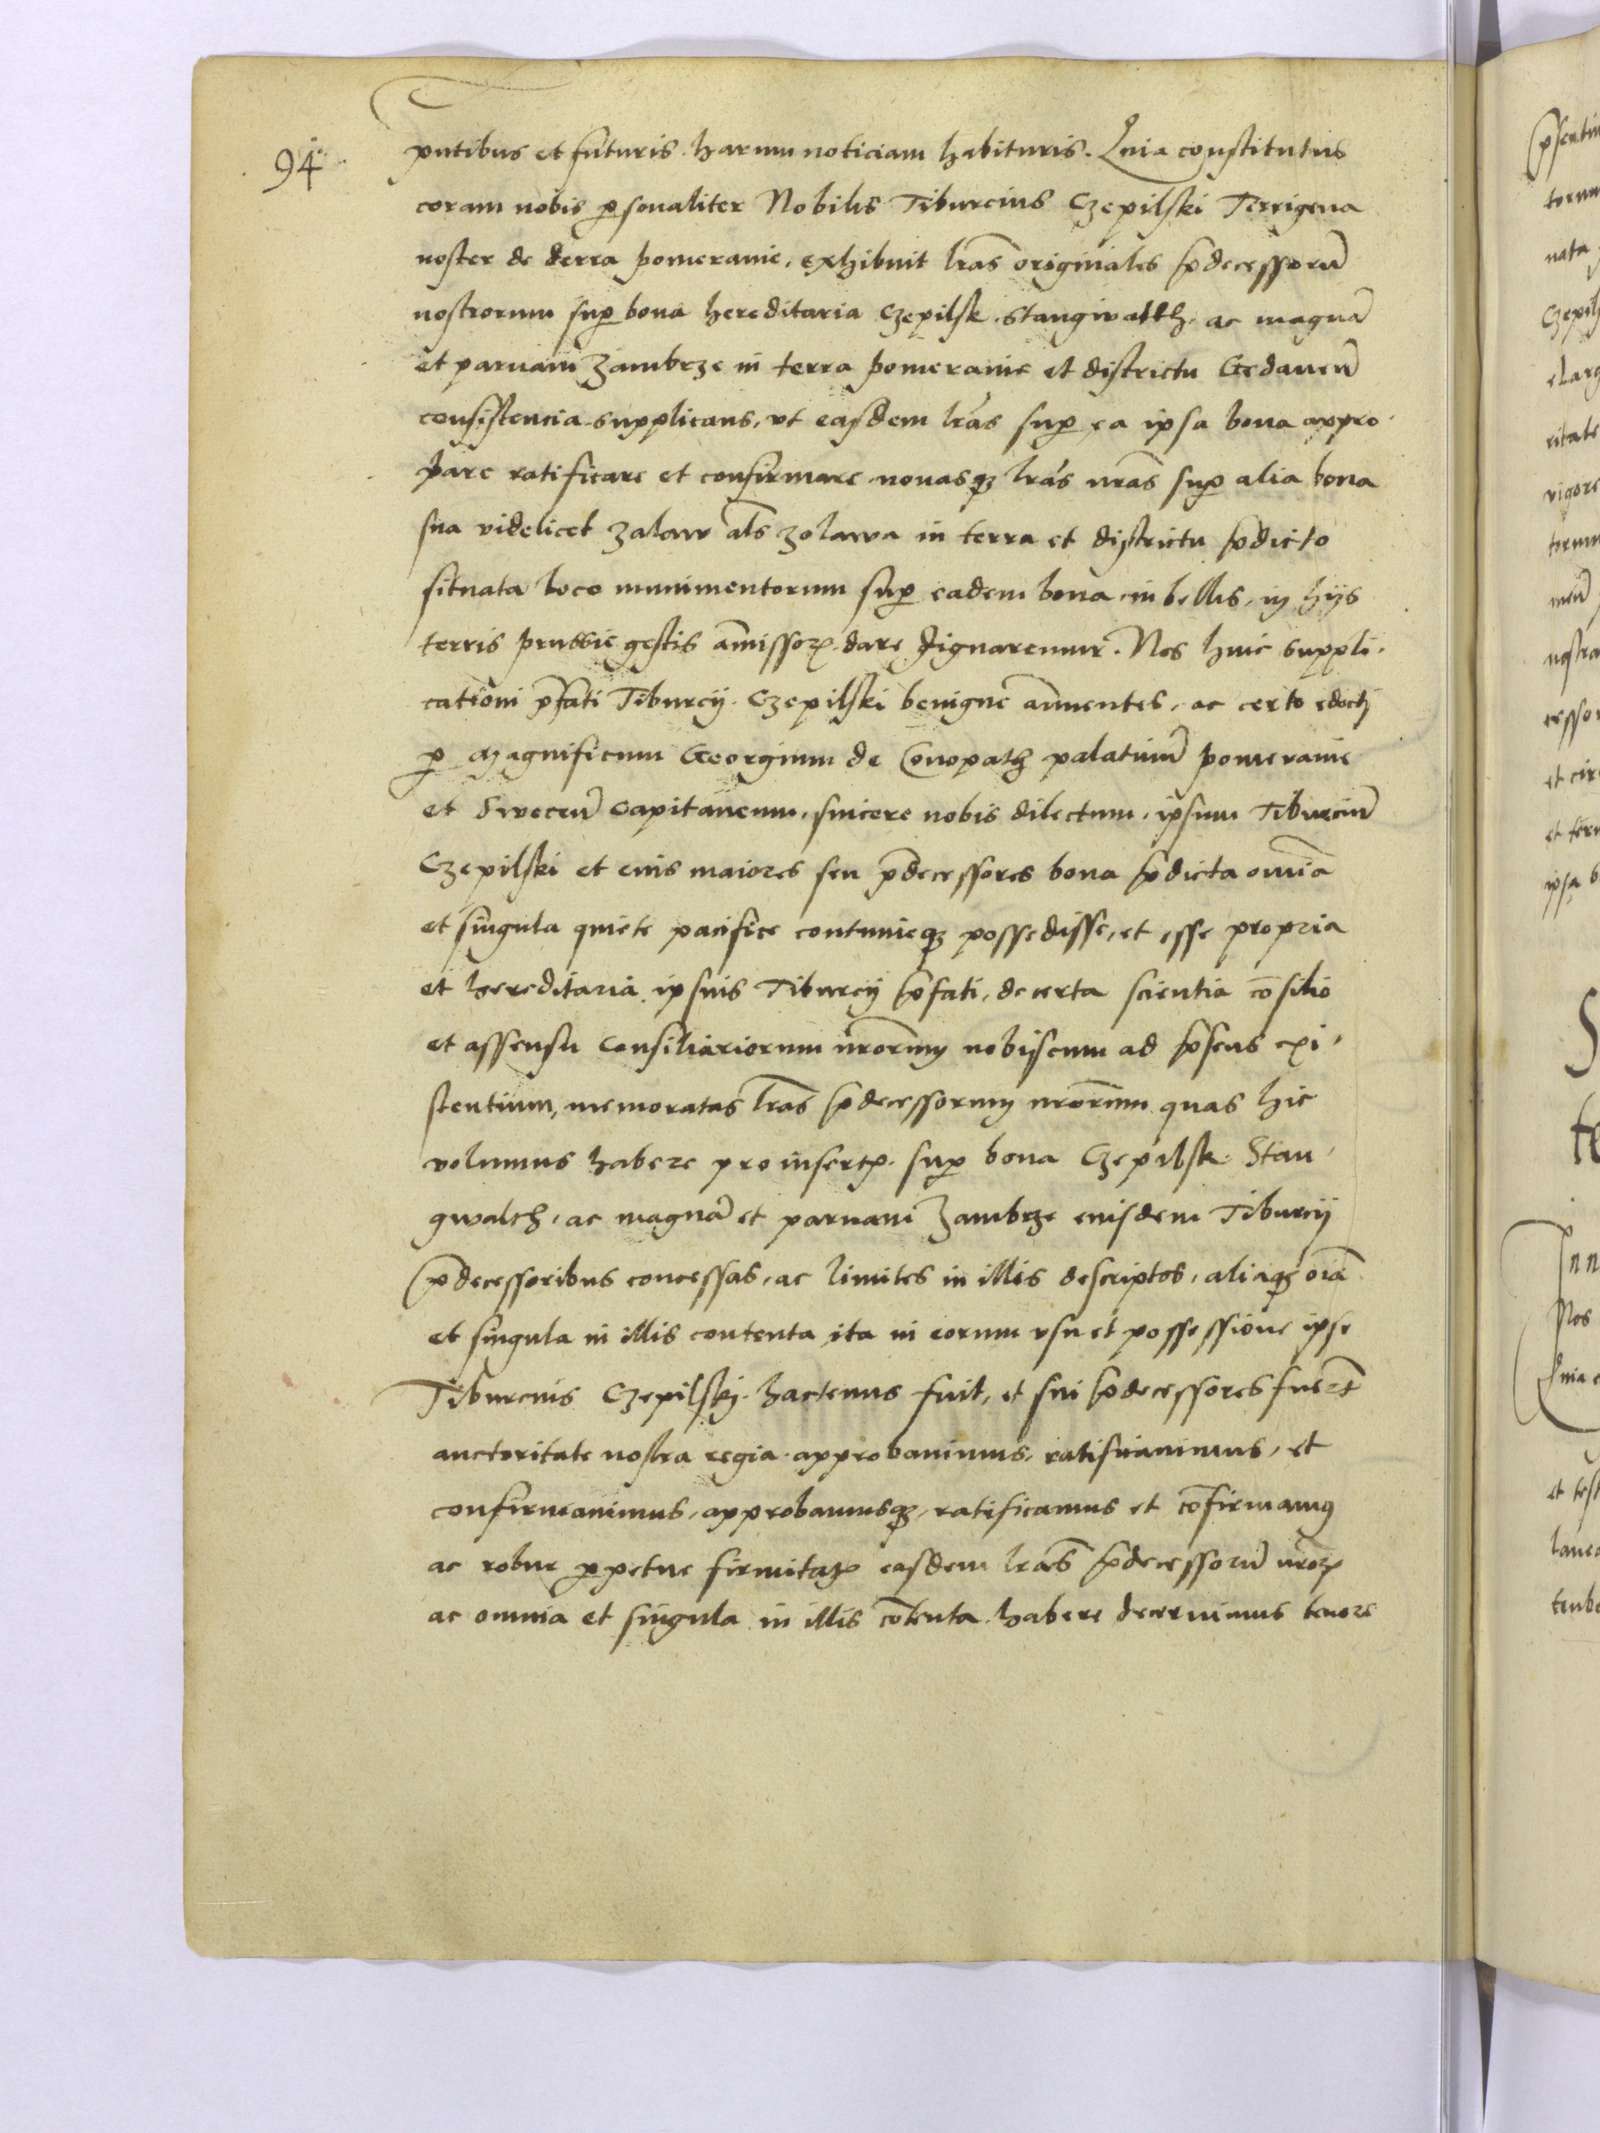 94
pntibus et futuris. harum noticiam habituris. Quia constitutus
coram nobis personaliter Nobilis Tiburcius Czepilski Terrigena
noster de derra pomeranie, exhibuit lras originales predecessorū
nostrorum super bona hereditaria Czepilsk. Stangwalth. ac magnā
et paruam Zambrze in terra pomeranie et districtu Gedanen̄
consistencia supplicans, vt easdem lras super ea ipsa bona appro
bare ratificare et confirmare nouasqȝ lras nras super alia bona
sua videlicet zalaw als zolawa in terra et districtu predicto
situata loco munimentorum super eadem bona in bellis, in hijs
terris prussie gestis amissorum dare dignaremur. Nos huic suppli.
cationi prefati Tiburcij Czepilski benigne annuentes, ac certo edocti
per Magnificum Georgium de Conopath palatinū pomeranie
et Swecen̄ Capitaneum, sincere nobis dilectum, ipsum Tiburciū
Czepilski et eius maiores seu predecessores bona predicta omnia
et singula quiete pacifice continueqȝ possedisse, et esse propria
et hereditaria ipsius Tiburcij prefati, de certa scientia cōsilio
et assensu Consiliariorum nrorum nobiscum ad presens exi,
stentium, memoratas lras predecessorum nrorum quas hic
volumus habere pro insertis super bona Czepilsk Stan,
gwalth, ac magnā et paruam Zambrze eiusdem Tiburcij
predecessoribus concessas, ac limites in illis descriptos, aliaqȝ oia
et singula in illis contenta ita in eorum vsu et possessione ipse
Tiburcius Czepilskj hactenus fuit, et sui predecessores fuerūt
auctoritate nostra regia approbauimus, ratificauimus, et
confirmauimus, approbamusqȝ, ratificamus et cōfirmamus
ac robur perpetue firmitatis easdem lras predecessorū nrorum
ac omnia et singula in illis cōtenta habere decernimus tenore